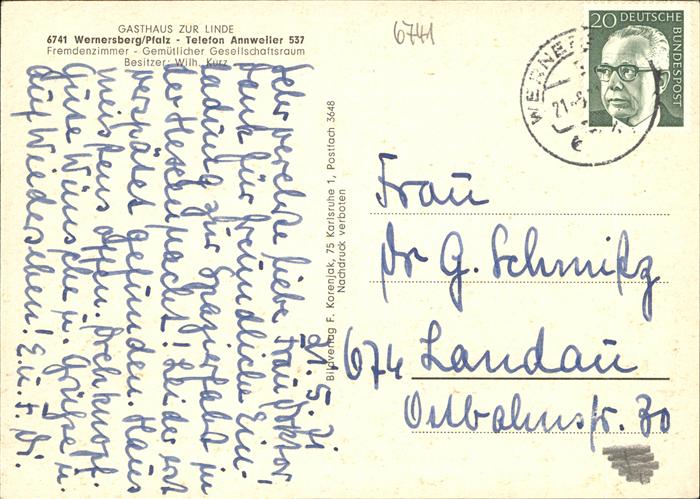 GASTHAUS ZUR LINDE
6741 Wernersberg/Pfalz - Telefon Annweiler 537
Fremdenzimmer - Gemütlicher Gesellschaftsraum
Besitzer: Wilh. Kurz
6741
20 DEUTSCHE
BUNDESPOST
WERNE
21.-
21. 5. 71
Sehr verehrte liebe Frau Doktor!
Dank für freundliche Ein-
ladung zur Spazierfahrt in
der Hexennacht! Leider erst
verspätet gefunden. Haus
meistens offen. Drehknopf.
Gute Wünsche u. Grüße u.
auf Wiedersehen! E. u. F. Di.
Bildverlag F. Korenjak, 75 Karlsruhe 1, Postfach 3648
Nachdruck verboten
Frau
Dr G. Schmitz
674 Landau
Ostbahnstr. 30